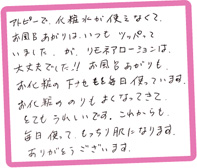 アトピーで、化粧水が使えなくて、
お風呂あがりは、いつも ツッパって
いました。が、リモネアローションは、
大丈夫でした!! お風呂あがりも、
お化粧の下地にも毎日使っています。
お化粧ののりもよくなってきて、
とてもうれしいです。これからも、
毎日使って、もっちり肌になります。
ありがとうございます。